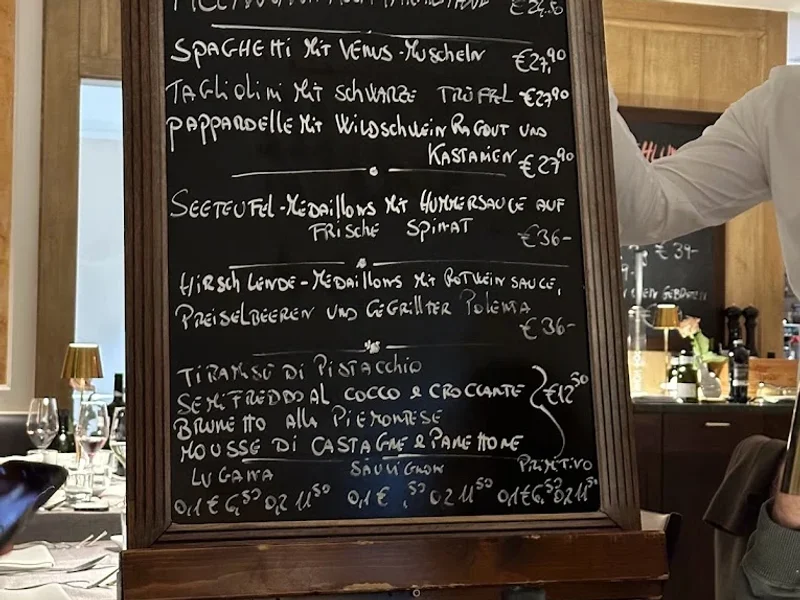 €24,50
SPAGHETTI MIT VENUS-MUSCHELN €27,90
TAGLIOLINI MIT SCHWARZE TRÜFFEL €27,90
PAPPARDELLE MIT WILDSCHWEIN RAGOUT UND
KASTANIEN €27,90
SEETEUFEL-MEDAILLONS MIT HUMMERSAUCE AUF
FRISCHE SPINAT €36-
HIRSCH LENDE-MEDAILLONS MIT ROTWEIN SAUCE,
PREISELBEEREN UND GEGRILLTER POLENTA
€36-
TIRAMISU DI PISTACCHIO
SEMIFREDDO AL COCCO E CROCCANTE €12,50
BRUNETTO ALLA PIEMONTESE
MOUSSE DI CASTAGNE & PANETTONE
LUGANA SAUVIGNON PRIMITIVO
0,1 € 6,50 0,2 11,50 0,1 € ,50 0,2 11,50 0,1 € 6,50 0,2 11,50
€ 39-